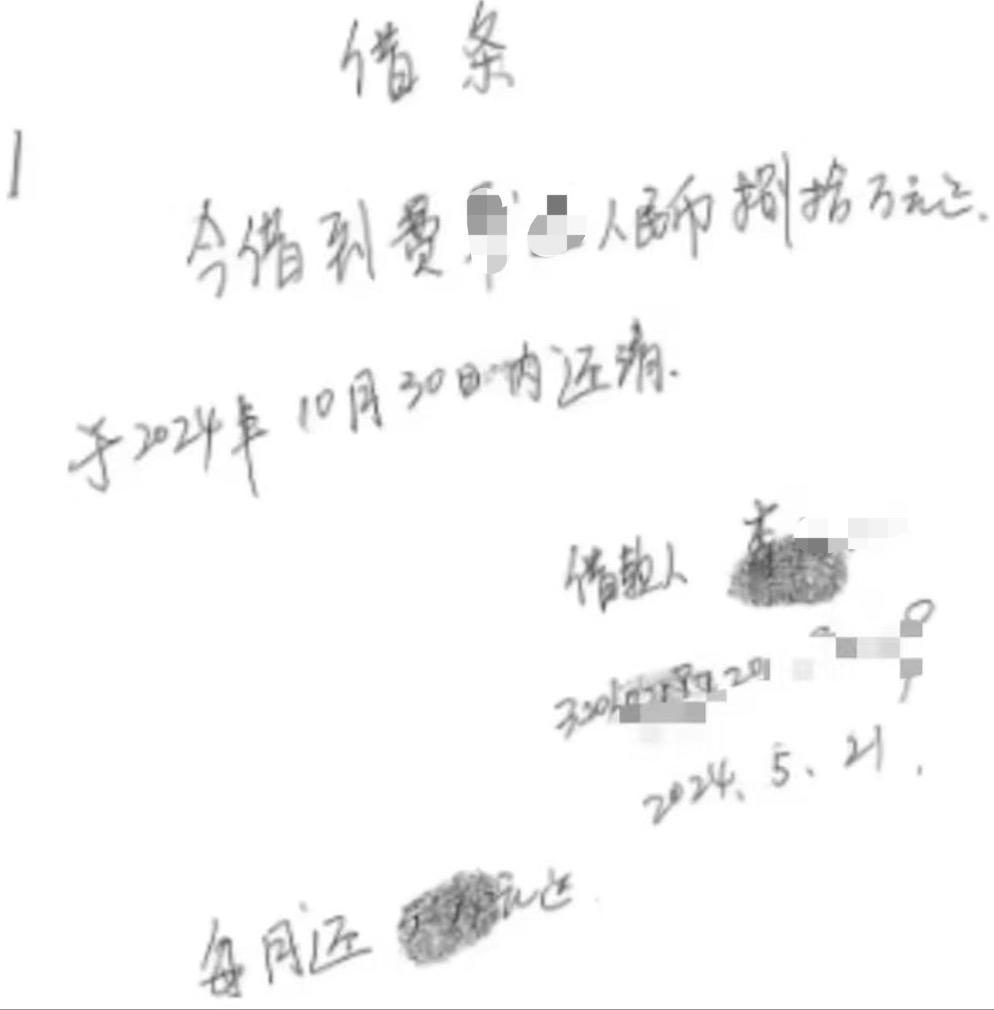 借条
今借到费 人民币捌拾万元正.
于2024年10月30日内还清.
借款人 李
320 20
2024.5.21.
每月还 元正.